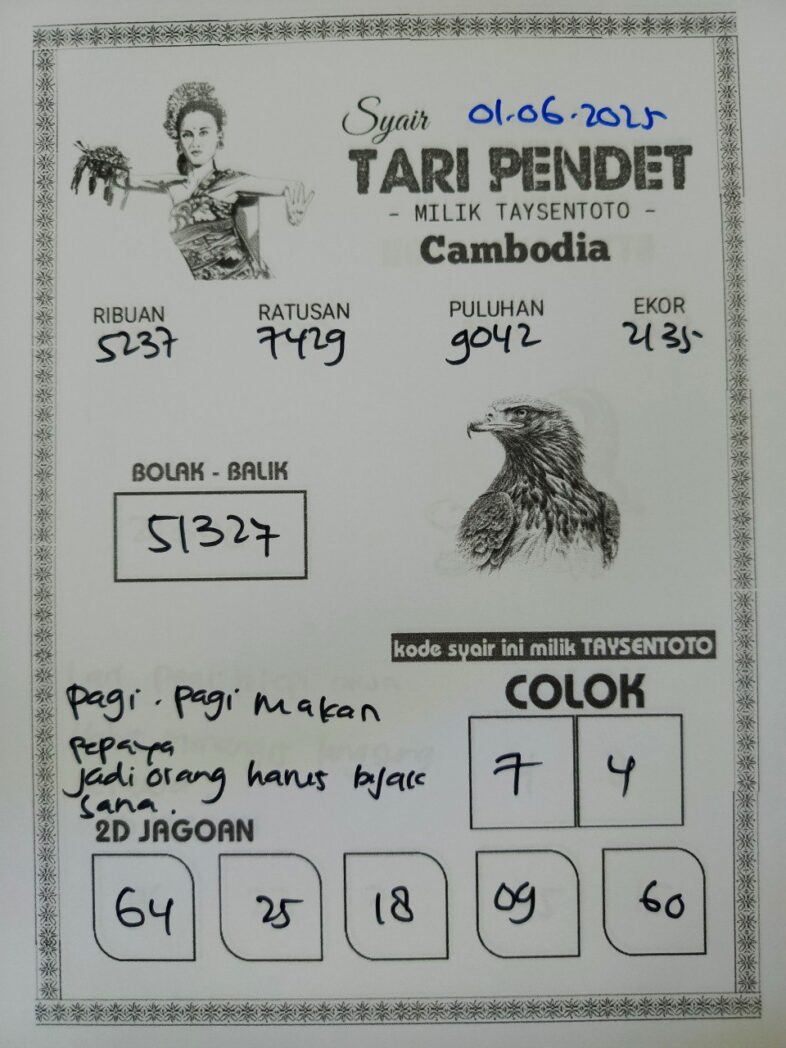 Syair 01.06.2025
TARI PENDET
- MILIK TAYSENTOTO -
Cambodia
RIBUAN RATUSAN PULUHAN EKOR
5237 7429 9042 2135
BOLAK - BALIK
51327
kode syair ini milik TAYSENTOTO
COLOK
7 4
pagi . pagi makan
pepaya
jadi orang harus bijak
sana .
2D JAGOAN
64 25 18 09 60